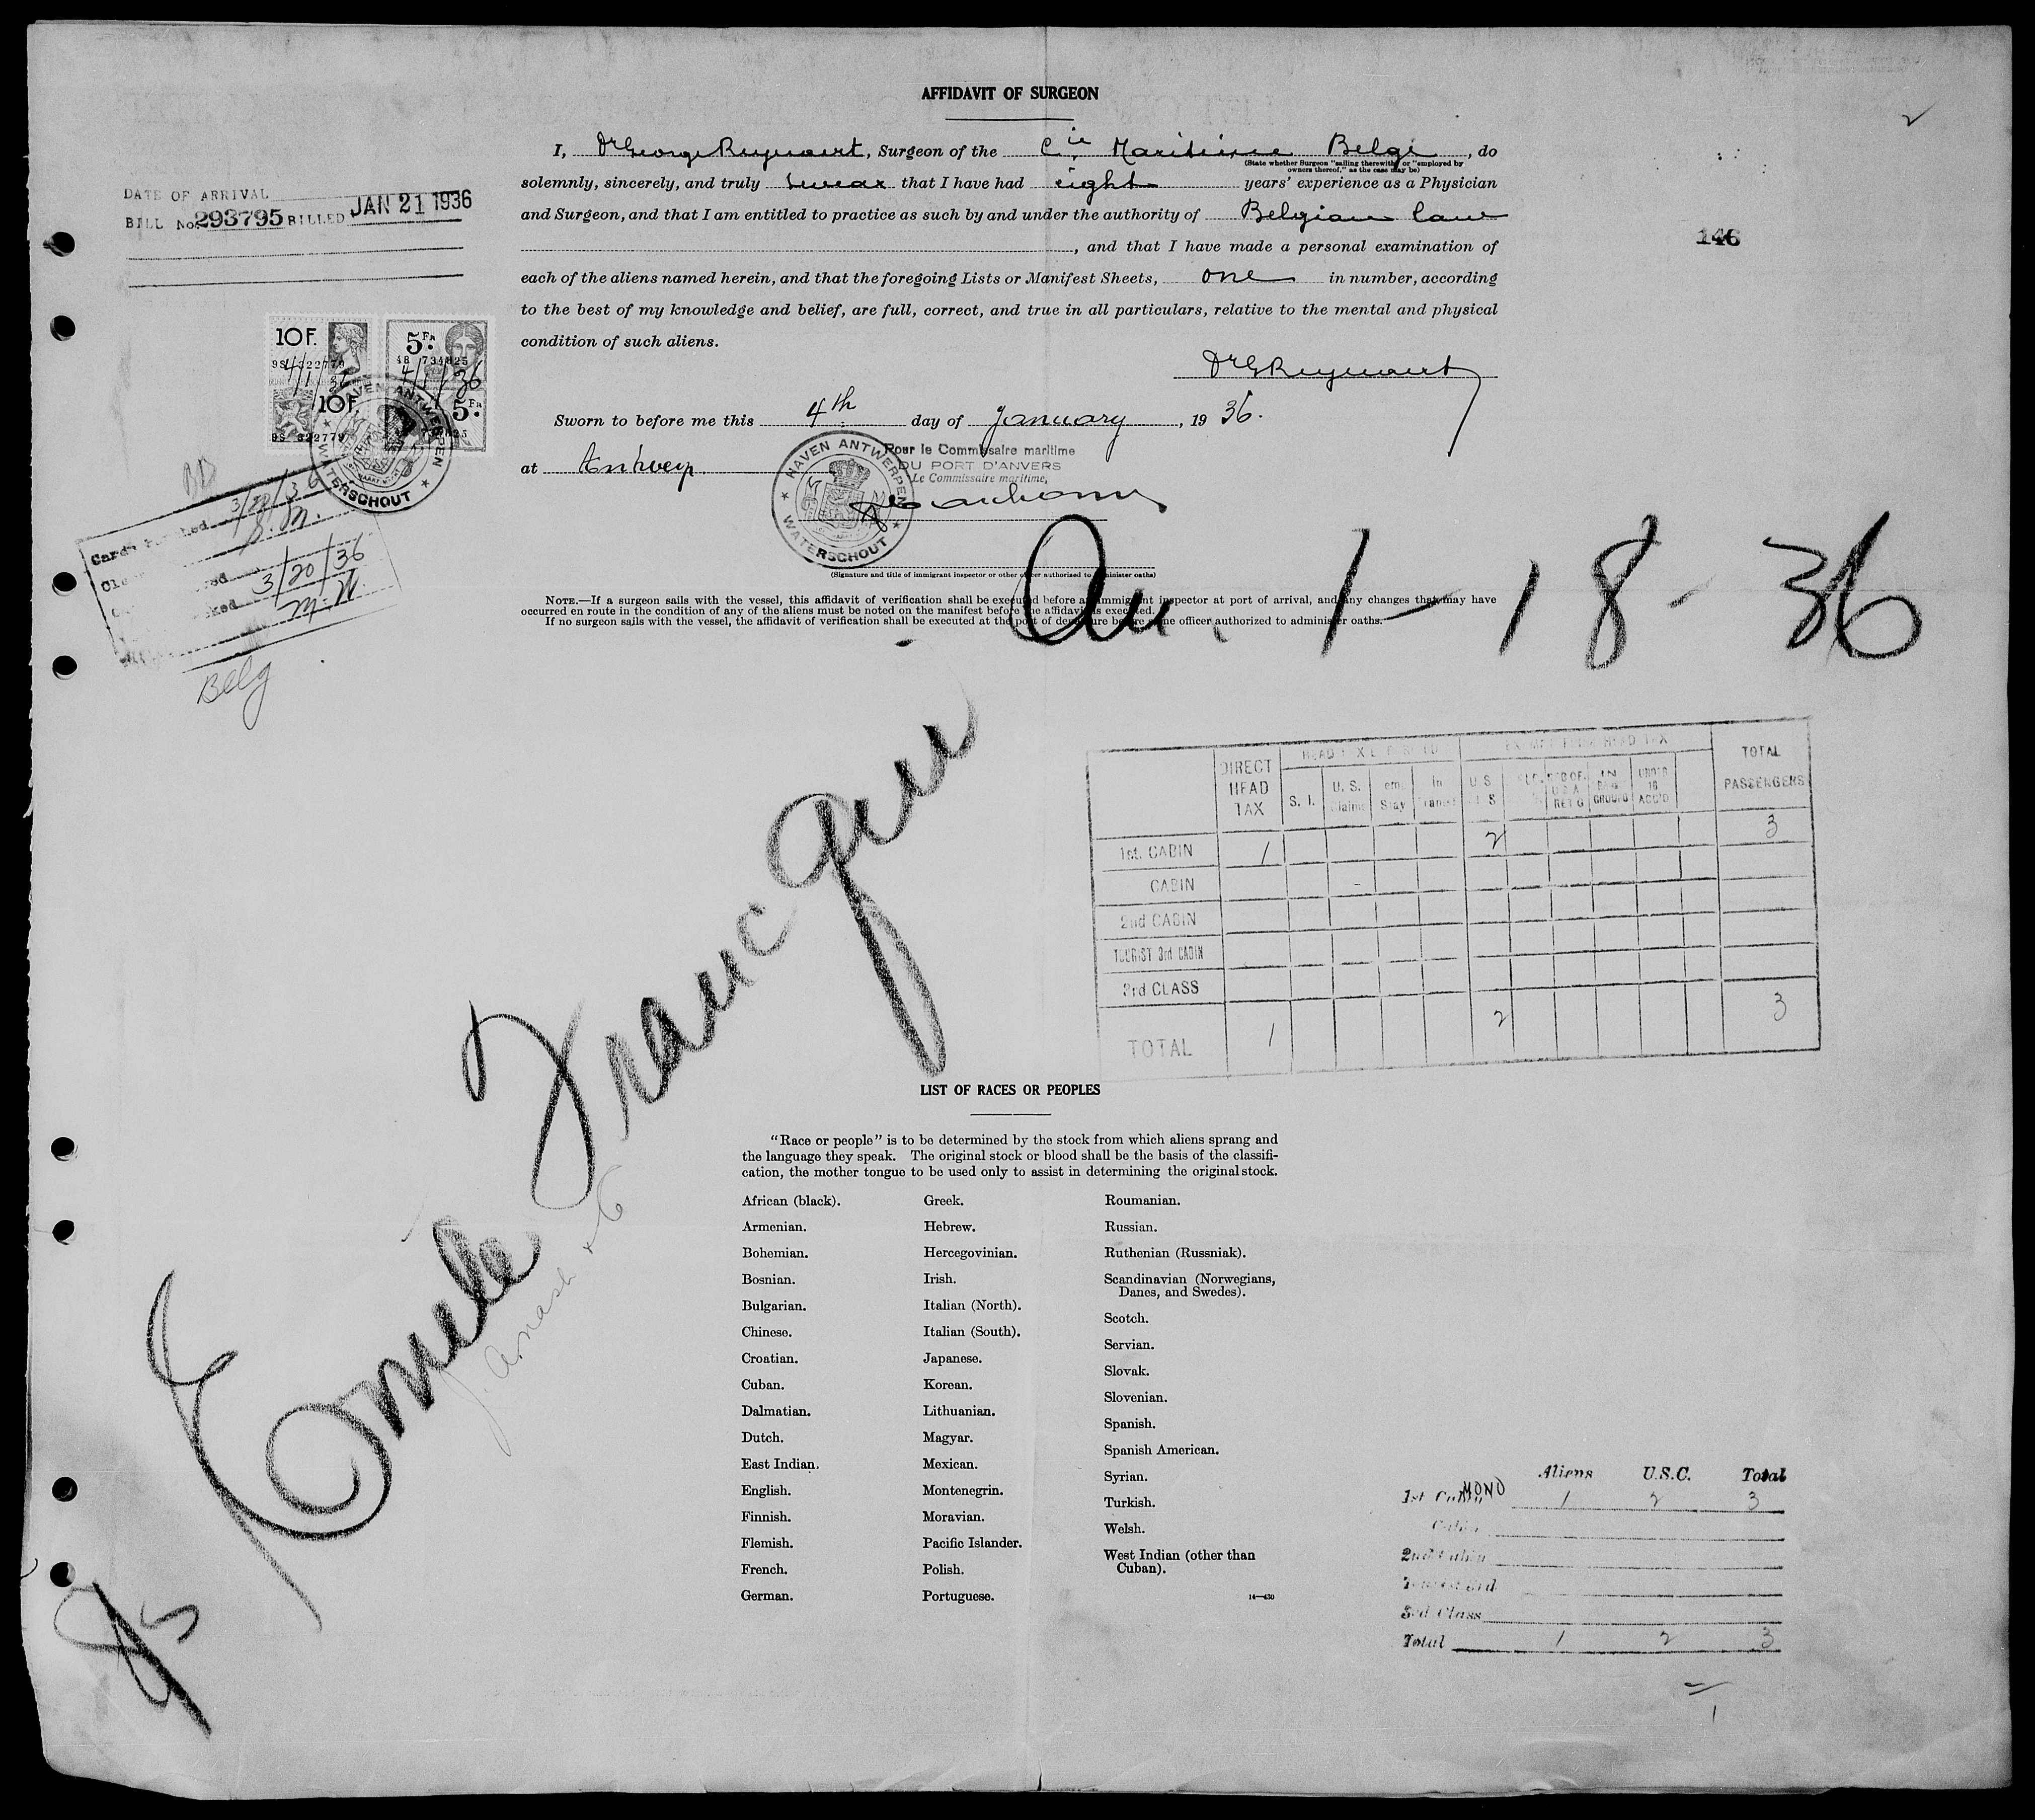 AFFIDAVIT OF SURGEON
I, Dr George Reymaert, Surgeon of the Cie Maritime Belge, do
(State whether Surgeon "sailing therewith" or "employed by
owners thereof," as the case may be)
solemnly, sincerely, and truly swear that I have had eight years' experience as a Physician
and Surgeon, and that I am entitled to practice as such by and under the authority of Belgian law
, and that I have made a personal examination of
each of the aliens named herein, and that the foregoing Lists or Manifest Sheets, one in number, according
to the best of my knowledge and belief, are full, correct, and true in all particulars, relative to the mental and physical
condition of such aliens.
Sworn to before me this 4th day of January, 19 36.
at Antwerp.
Pour le Commissaire maritime
DU PORT D'ANVERS
Le Commissaire maritime,
HAVEN ANTWERPEN
WATERSCHOUT
(Signature and title of immigrant inspector or other officer authorised to administer oaths)
NOTE.—If a surgeon sails with the vessel, this affidavit of verification shall be executed before an immigrant inspector at port of arrival, and any changes that may have
occurred en route in the condition of any of the aliens must be noted on the manifest before the affidavit is executed.
If no surgeon sails with the vessel, the affidavit of verification shall be executed at the port of departure before some officer authorized to administer oaths.
DATE OF ARRIVAL
BILL No. 293795 BILLED JAN 21 1936
146
10 F.
5 Fr.
9S 322779
48 734825
4/1/36
4/1/36
10 F.
5 Fr.
9S 322779
HAVEN ANTWERPEN
WATERSCHOUT
3/20/36
S.M.
3/20/36
M.W.
Belg
Arr. 1-18-36
Emile Francqui
85
DIRECT HEAD TAX
HEAD TAX
EXEMPT FROM HEAD TAX
TOTAL PASSENGERS
S. I.
U. S.
In Transit
1st. CABIN 1 2 3
CABIN
2nd CABIN
TOURIST 3rd CABIN
3rd CLASS
TOTAL 1 2 3
LIST OF RACES OR PEOPLES
"Race or people" is to be determined by the stock from which aliens sprang and
the language they speak. The original stock or blood shall be the basis of the classifi-
cation, the mother tongue to be used only to assist in determining the original stock.
African (black).
Armenian.
Bohemian.
Bosnian.
Bulgarian.
Chinese.
Croatian.
Cuban.
Dalmatian.
Dutch.
East Indian.
English.
Finnish.
Flemish.
French.
German.
Greek.
Hebrew.
Hercegovinian.
Irish.
Italian (North).
Italian (South).
Japanese.
Korean.
Lithuanian.
Magyar.
Mexican.
Montenegrin.
Moravian.
Pacific Islander.
Polish.
Portuguese.
Roumanian.
Russian.
Ruthenian (Russniak).
Scandinavian (Norwegians,
Danes, and Swedes).
Scotch.
Servian.
Slovak.
Slovenian.
Spanish.
Spanish American.
Syrian.
Turkish.
Welsh.
West Indian (other than
Cuban).
14—430
Aliens U.S.C. Total
1st Cabin MONO 1 2 3
Cabin
2nd Cabin
Tourist 3rd
3rd Class
Total 1 2 3